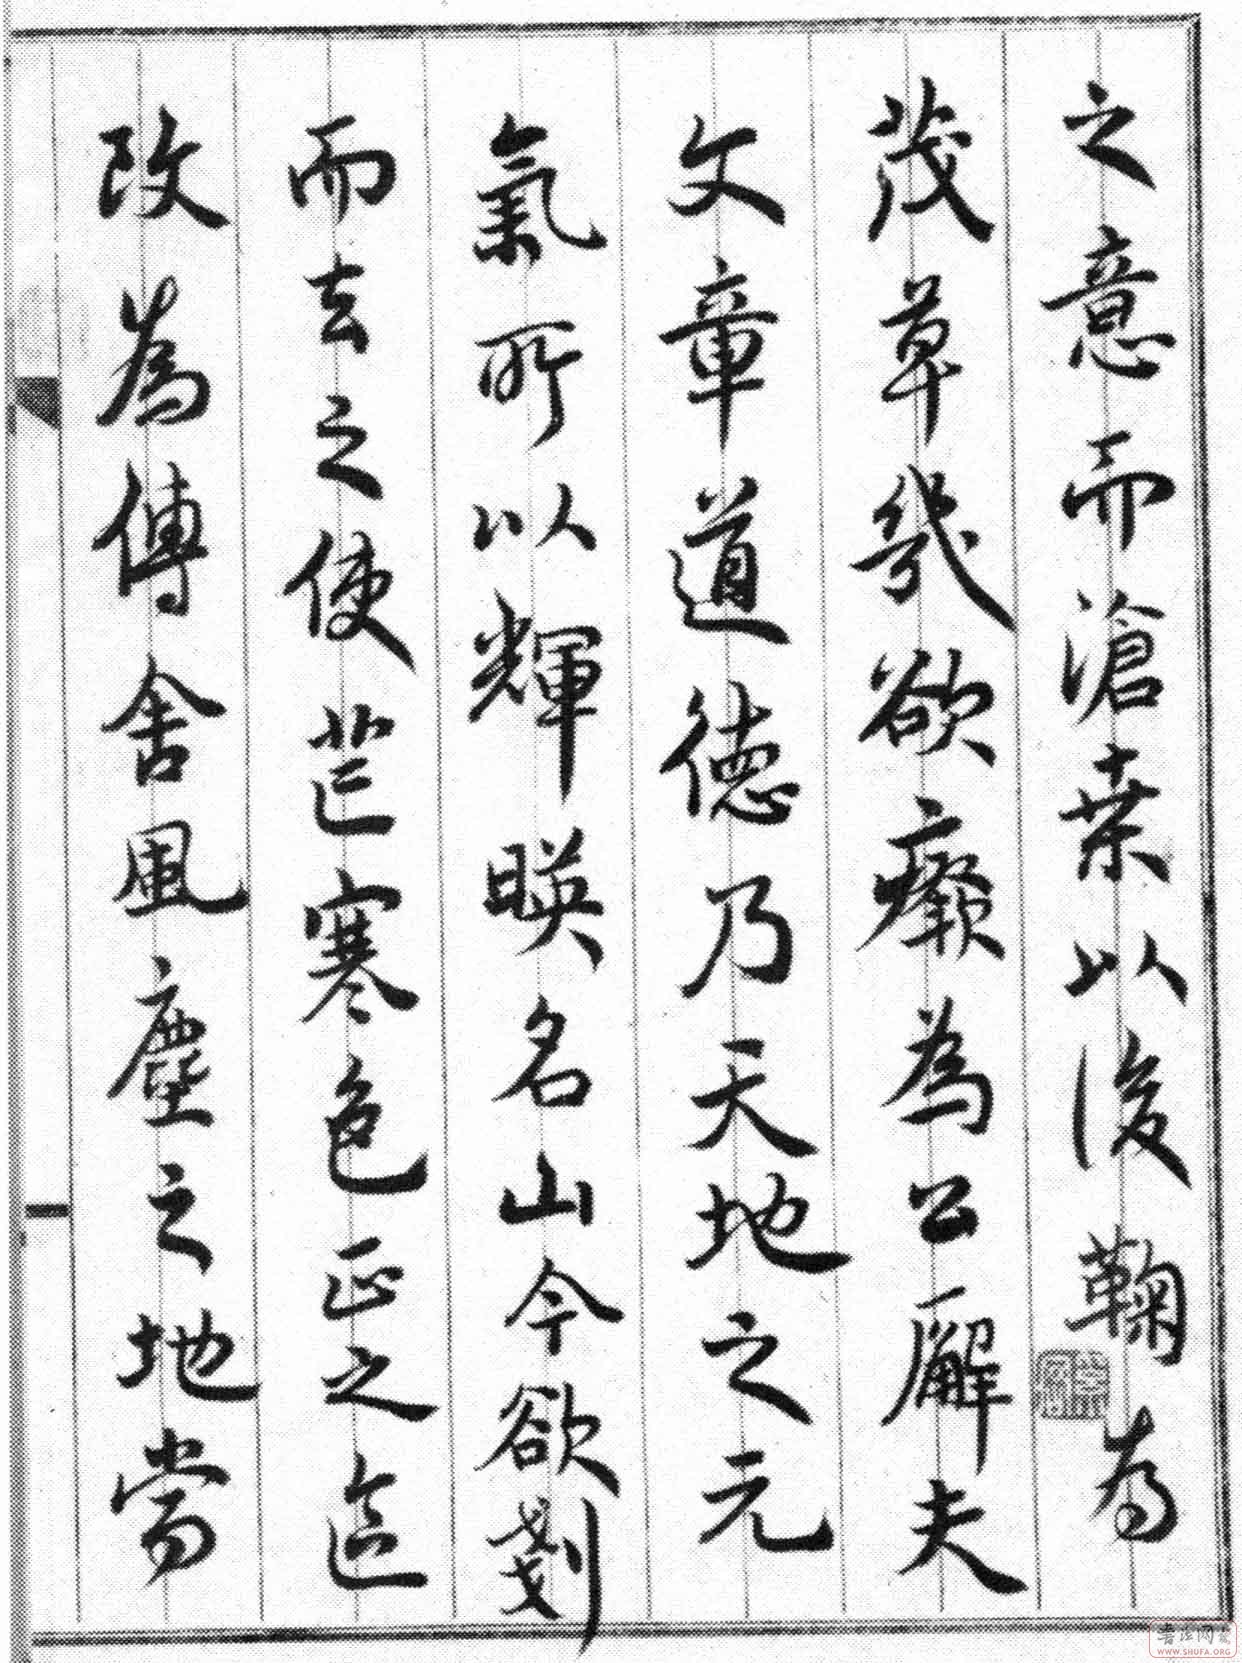 之意而滄桒以後鞠為
茂草幾欲癈為公廨夫
文章道德乃天地之元
氣所以輝暎名山今欲剗
而去之使芒寒色正之區
改為傳舍風塵之地當
WWW.SHUFA.ORG